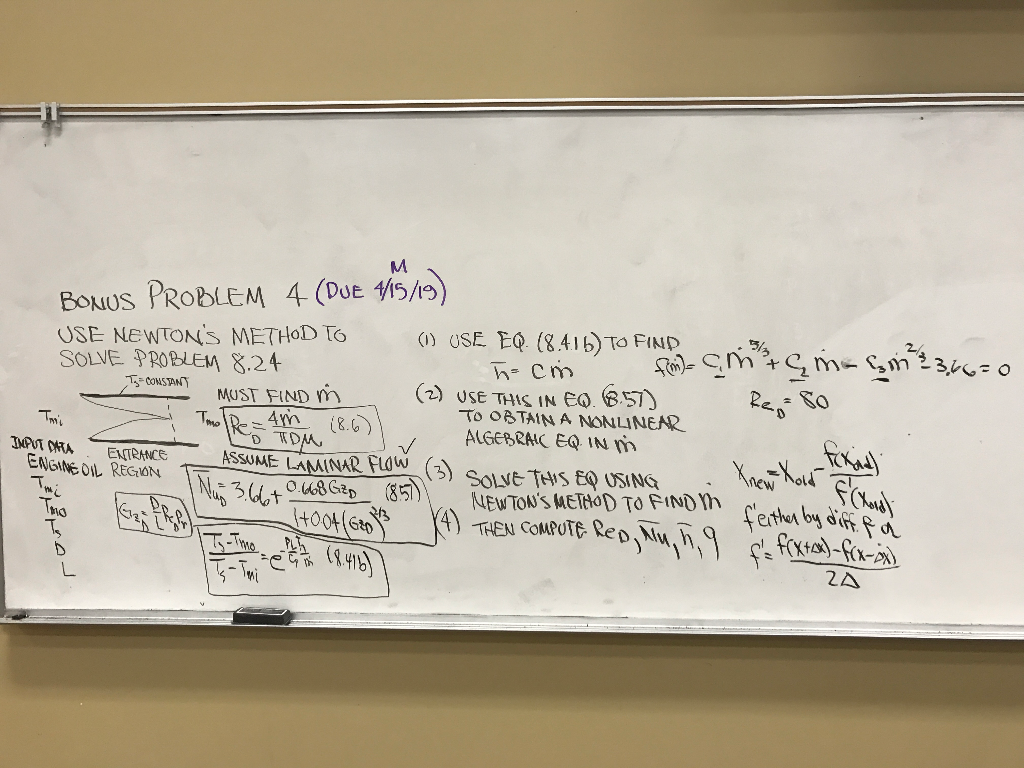 BONUS PROBLEM 4 (DUE M 4/15/19)
USE NEWTON'S METHOD TO
SOLVE PROBLEM 8.24
Ts=CONSTANT
Tmi
Tmo
ENTRANCE
REGION
INPUT DATA
ENGINE OIL
Tmi
Tmo
Ts
D
L
MUST FIND ṁ
Re_D = 4ṁ/πDμ (8.6)
ASSUME LAMINAR FLOW ✓
N̄u_D = 3.66 + 0.668 Gz_D / 1+0.04(Gz_D)^2/3 (8.57)
Gz_D = D/L Re_D Pr
Ts-Tmo / Ts-Tmi = e^-PLh̄/Cp ṁ (8.41b)
(1) USE EQ. (8.41b) TO FIND
h̄ = Cṁ
(2) USE THIS IN EQ. (8.57)
TO OBTAIN A NONLINEAR
ALGEBRAIC EQ IN ṁ
(3) SOLVE THIS EQ USING
NEWTON'S METHOD TO FIND ṁ
(4) THEN COMPUTE Re_D, N̄u, h̄, q
f(ṁ) = C1 ṁ^5/3 + C2 ṁ - C3 ṁ^2/3 - 3.66 = 0
Re_D = 80
Xnew = Xold - f(Xold)/f'(Xold)
f' either by diff. f or
f' = f(x+Δx)-f(x-Δx) / 2Δ